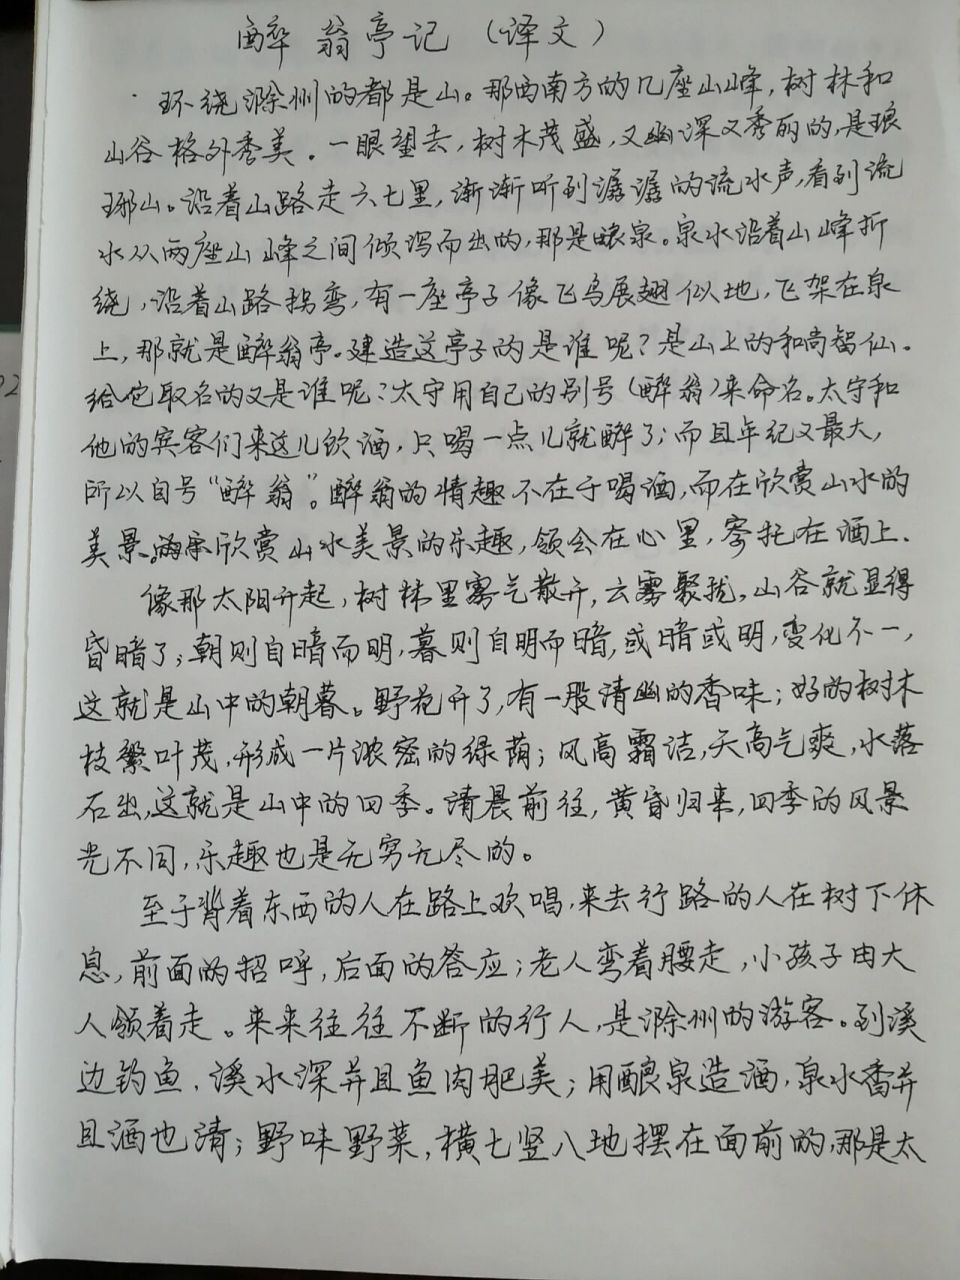 醉翁亭记（译文）
环绕滁州的都是山。那西南方的几座山峰，树林和
山谷格外秀美。一眼望去，树木茂盛，又幽深又秀丽的，是琅
琊山。沿着山路走六七里，渐渐听到潺潺的流水声，看到流
水从两座山峰之间倾泻而出的，那是酿泉。泉水沿着山峰折
绕，沿着山路拐弯，有一座亭子像飞鸟展翅似地，飞架在泉
上，那就是醉翁亭。建造这亭子的是谁呢？是山上的和尚智仙。
给它取名的又是谁呢？太守用自己的别号（醉翁）来命名。太守和
他的宾客们来这儿饮酒，只喝一点儿就醉了；而且年纪又最大，
所以自号“醉翁”。醉翁的情趣不在于喝酒，而在欣赏山水的
美景。欣赏山水美景的乐趣，领会在心里，寄托在酒上。
像那太阳升起，树林里雾气散开，云雾聚拢，山谷就显得
昏暗了；朝则自暗而明，暮则自明而暗，或暗或明，变化不一，
这就是山中的朝暮。野花开了，有一股清幽的香味；好的树木
枝繁叶茂，形成一片浓密的绿荫；风高霜洁，天高气爽，水落
石出，这就是山中的四季。清晨前往，黄昏归来，四季的风景
光不同，乐趣也是无穷无尽的。
至于背着东西的人在路上欢唱，来去行路的人在树下休
息，前面的招呼，后面的答应；老人弯着腰走，小孩子由大
人领着走。来来往往不断的行人，是滁州的游客。到溪
边钓鱼，溪水深并且鱼肉肥美；用酿泉造酒，泉水香并
且酒也清；野味野菜，横七竖八地摆在面前的，那是太